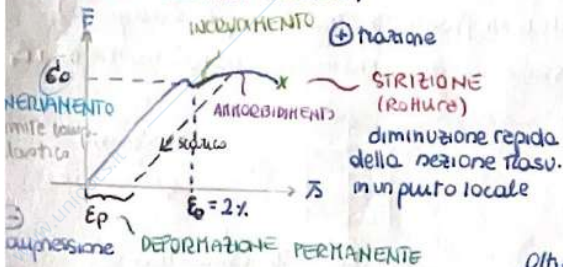 F
INCRUDIMENTO
⊕ trazione
σo
NERVAMENTO
AMMORBIDIMENTO
STRIZIONE
(Rottura)
scarico
diminuzione rapida
della sezione trasv.
in un punto locale
εp
εo = 2%
s
compressione
DEFORMAZIONE PERMANENTE